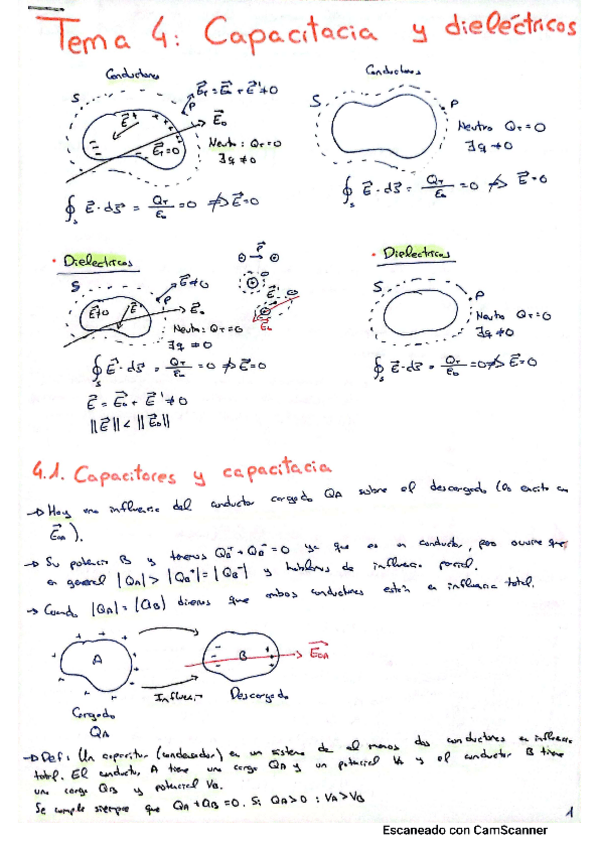 Tema 4: Capacitacia y dieléctricos
Conductores
Conductores
S
P
E⃗T = E⃗o + E⃗' ≠ 0
E⃗'
E⃗o
E⃗T = 0
Neutro: QT = 0
∃q ≠ 0
∮s E⃗·dS⃗ = QT/εo = 0 ⇏ E⃗=0
S
P
Neutro QT = 0
∃q ≠ 0
∮s E⃗·dS⃗ = QT/εo = 0 ⇏ E⃗=0
• Dieléctricos
S
P
E⃗≠0
E⃗≠0
E⃗'
E⃗o
Neutro: QT = 0
∃q ≠ 0
P⃗
E⃗
E⃗o
∮s E⃗·dS⃗ = QT/εo = 0 ⇏ E⃗=0
E⃗ = E⃗o + E⃗' ≠ 0
||E⃗|| < ||E⃗o||
• Dieléctricos
S
P
Neutro QT = 0
∃q ≠ 0
∮s E⃗·dS⃗ = QT/εo = 0 ⇏ E⃗=0
4.1. Capacitores y capacitacia
→ Hay una influencia del conductor cargado QA sobre el descargado (
E⃗OA).
→ B y tenemos QB⁺ + QB⁻ = 0 ya que es un conductor, pero ocurre que,
en general |QA| > |QB⁺| = |QB⁻| y hablamos de influencia parcial.
→ Cuando |QA| = |QB| diremos que ambos conductores están en influencia total.
A
B
E⃗OA
Influencia
Descargado
Cargado
QA
→ Def: Un capacitor (condensador) es un sistema de al menos dos conductores en influencia
total. El conductor A tiene una carga QA y un potencial VA y el conductor B tiene
una carga QB y potencial VB.
Se cumple siempre que QA + QB = 0. Si QA > 0 : VA > VB
1
Escaneado con CamScanner